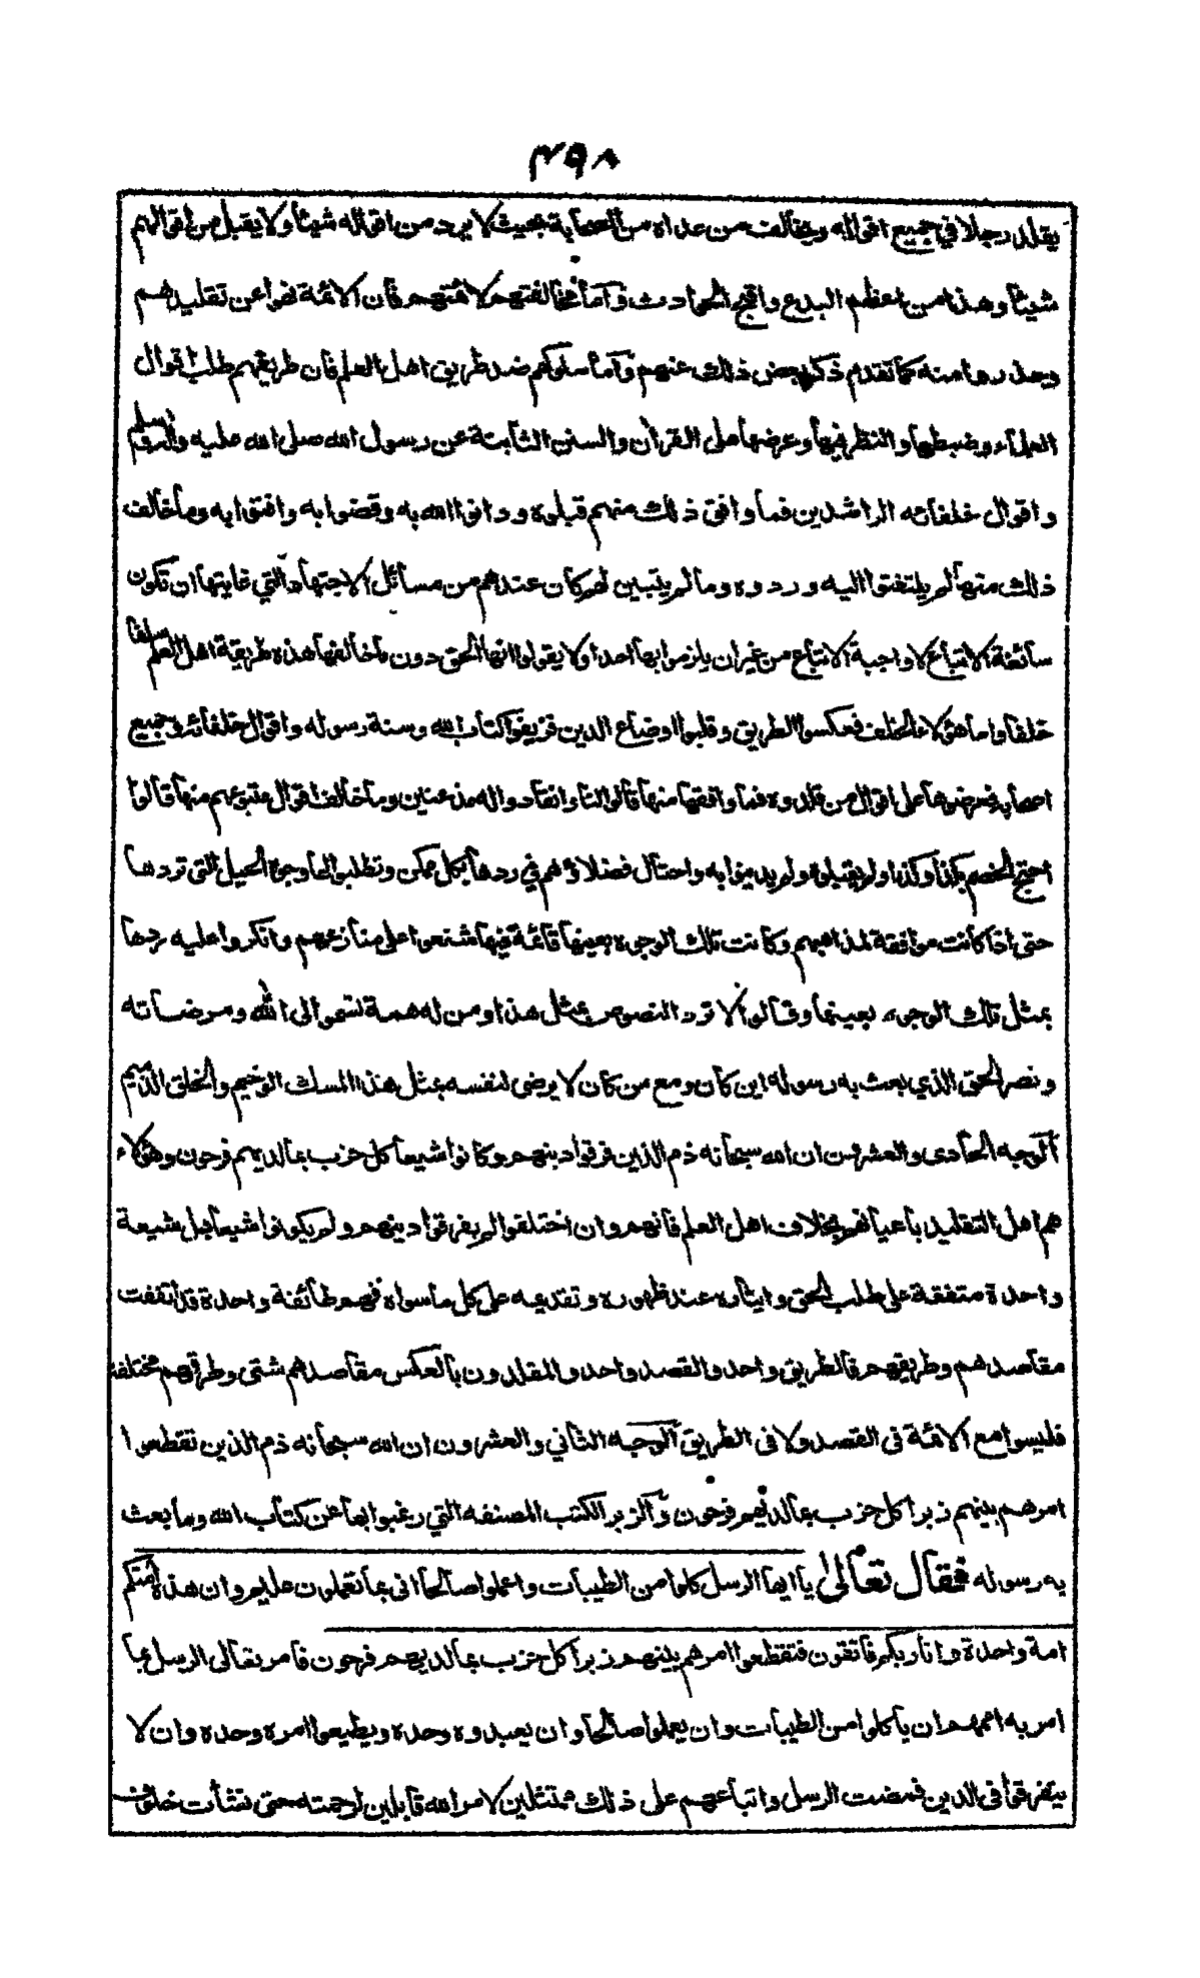 ٤٩٨
يقلد رجلا في جميع اقواله ويخالف من عداه من الصحابة بحيث لا يرد من اقواله شيئا ولا يقبل من اقوالهم
شيئا وهذا من اعظم البدع واقبح الحوادث وآما مخالفتهم لائمتهم فان الائمة نهوا عن تقليدهم
وحذروا منه كما تقدم ذكر بعض ذلك عنهم وآما سلوكهم ضد طريق اهل العلم فان طريقهم طلب اقوال
العلماء وضبطها والنظر فيها وعرضها على القرآن والسنن الثابتة عن رسول الله صلى الله عليه واله وسلم
واقوال خلفائه الراشدين فما وافق ذلك منهم قبلوه ودانوا الله به وقضوا به وافتوا به وما خالف
ذلك منها لم يلتفتوا اليه وردوه وما لم يتبين لهم كان عندهم من مسائل الاجتهاد التي غايتها ان تكون
سائغة الاتباع لا واجبة الاتباع من غير ان يلزموا بها احدا ولا يقولوا انها الحق دون ما خالفها هذه طريقة اهل العلم سلفا
خلفا واما هؤلاء الخلف فعكسوا الطريق وقلبوا اوضاع الدين فزيفوا كتاب الله وسنة رسوله واقوال خلفائه وجميع
اصحابه فعرضوها على اقوال من قلدوه فما وافقها منها قالوا لنا وانقادوا له مذعنين وما خالف اقوال متبوعهم منها قالوا
احتج الخصم بكذا وكذا ولم يقبلوه ولم يدينوا به واحتال فضلاؤهم في ردها بكل ممكن وتطلبوا لها وجوه الحيل التي تردها
حتى اذا كانت موافقة لمذاهبهم وكانت تلك الوجوه بعينها قائمة فيها شنعوا على منازعهم وانكروا عليه ردها
بمثل تلك الوجوه بعينها وقالوا لا ترد النصوص بمثل هذا ومن له همة تسموا الى الله ومرضاته
ونصر الحق الذي بعث به رسوله اين كان ومع من كان لا يرضى لنفسه بمثل هذا المسلك الوخيم والخلق الذميم
آلوجه الحادى والعشرون ان الله سبحانه ذم الذين فرقوا دينهم وكانوا شيعا كل حزب بما لديهم فرحون وهؤلاء
هم اهل التقليد باعيانهم بخلاف اهل العلم فانهم وان اختلفوا لم يفرقوا دينهم ولم يكونوا شيعا بل شيعة
واحدة متفقة على طلب الحق وايثاره عند ظهوره وتقديمه على كل ما سواه فهم طائفة واحدة قد اتفقت
مقاصدهم وطريقهم فالطريق واحد والقصد واحد والمقلدون بالعكس مقاصدهم شتى وطرقهم مختلفة
فليسوا مع الائمة فى القصد ولا فى الطريق آلوجه الثاني والعشرون ان الله سبحانه ذم الذين تقطعوا
امرهم بينهم زبرا كل حزب بما لديهم فرحون وآلزبر الكتب المصنفه التي رغبوا بها عن كتاب الله وما بعث
به رسوله فقال تعالى يا ايها الرسل كلوا من الطيبات واعملوا صالحا انى بما تعملون عليم وان هذه امتكم
امة واحدة وانا ربكم فاتقون فتقطعوا امرهم بينهم زبرا كل حزب بما لديهم فرحون فامر تعالى الرسل بما
امر به اممهم ان ياكلوا من الطيبات وان يعملوا صالحا وان يعبدوه وحده ويطيعوا امره وحده وان لا
يتفرقوا فى الدين فمضت الرسل واتباعهم على ذلك ممتثلين لامر الله قابلين لرحمته حتى نشأت خلوف